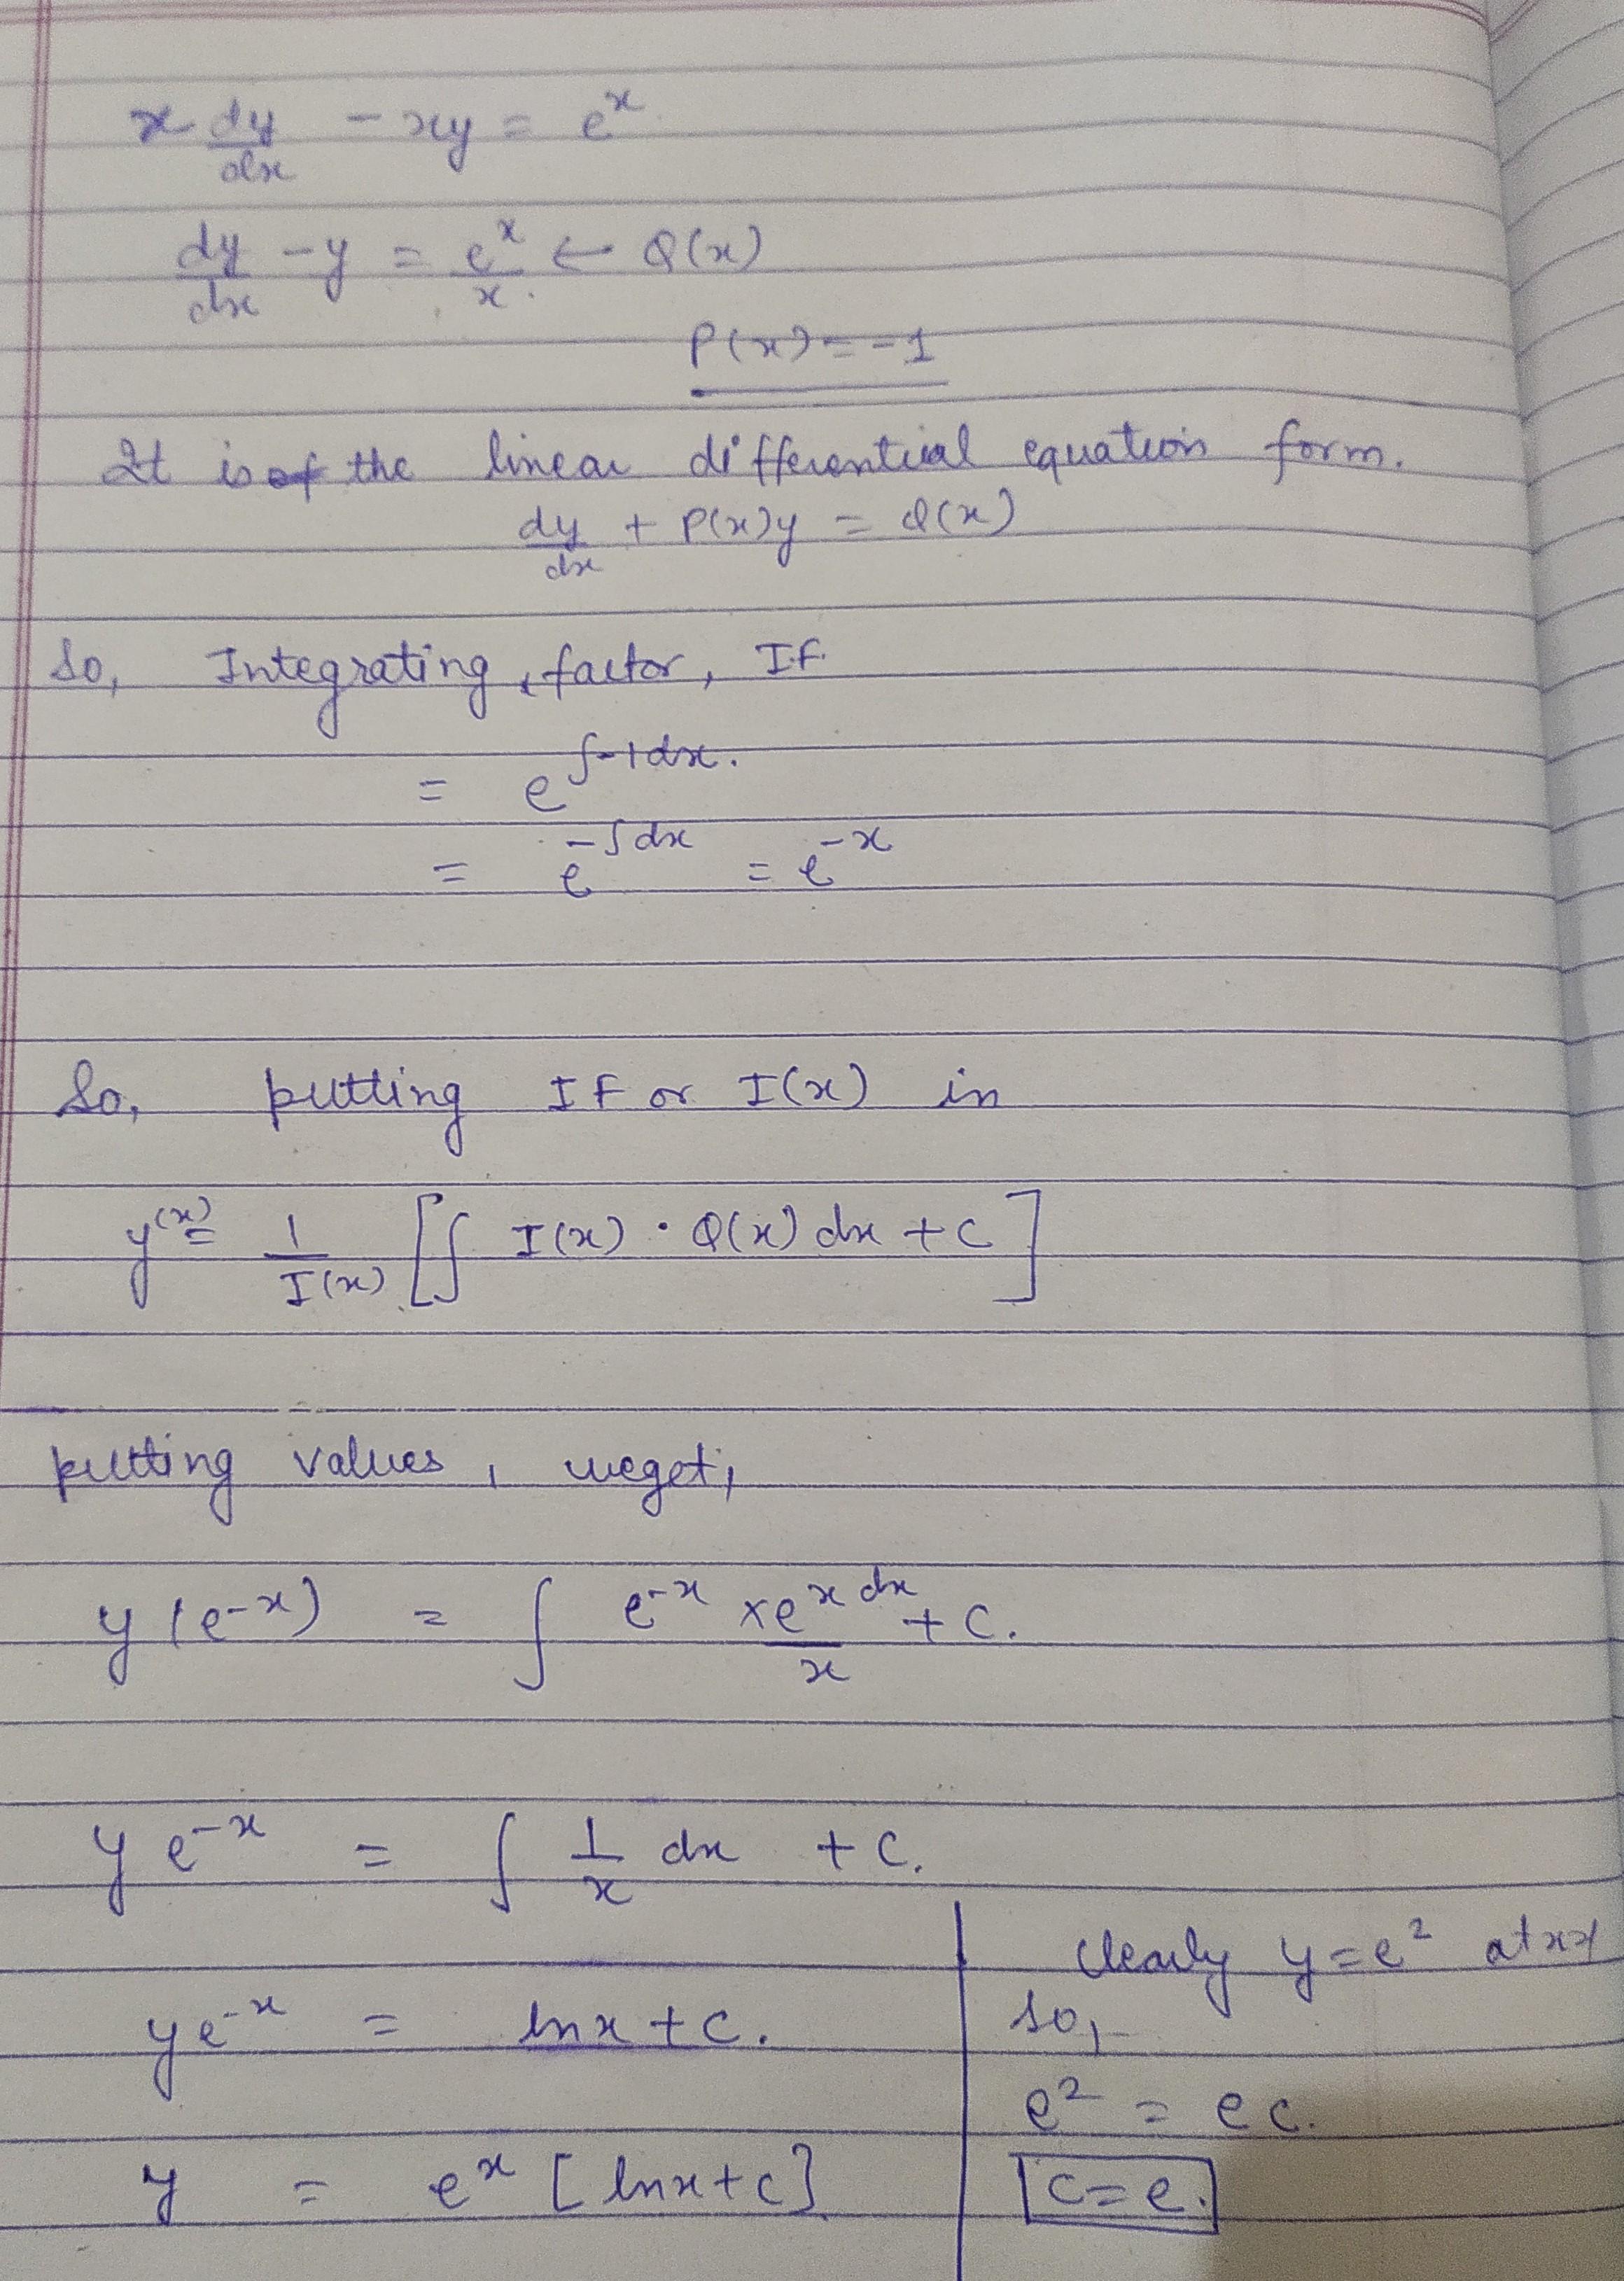 x dy/dx - xy = e^x
dy/dx - y = e^x/x ← Q(x)
P(x) = -1
It is of the linear differential equation form.
dy/dx + P(x)y = Q(x)
So, Integrating factor, I.F.
= e^∫-1dx.
= e^-∫dx = e^-x
So, putting IF or I(x) in
y(x) = 1/I(x) [∫ I(x) · Q(x) dx + C]
putting values, we get,
y(e^-x) = ∫ e^-x × e^x/x dx + C.
y e^-x = ∫ 1/x dx + C.
ye^-x = ln x + C.
y = e^x [ln x + C]
Clearly y = e^2 at
So,
e^2 = e c.
C = e.